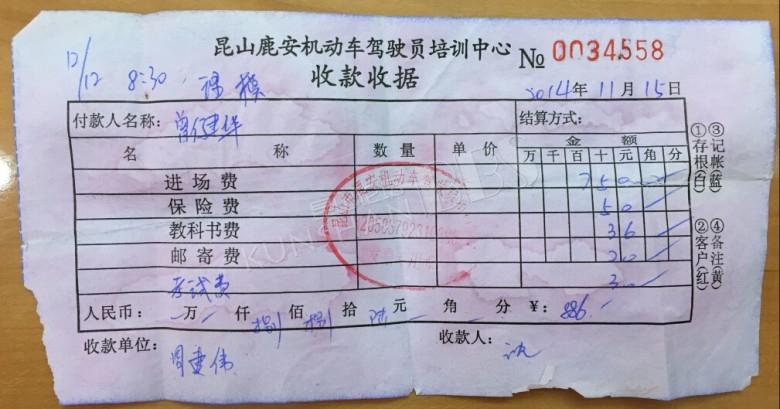 昆山鹿安机动车驾驶员培训中心 № 0034558
收款收据
12/12 8:30
2014年11月15日
付款人名称：曾健华 结算方式：
名称 数量 单价 金额
万 千 百 十 元 角 分
进场费 750
保险费 50
教科书费 36
邮寄费 20
考试费 30
人民币： 万 仟 捌佰 捌拾 陆元 角 分 ¥：886.
收款单位： 收款人： 沈
①存根(白) ③记帐(蓝)
②客户(红) ④备注(黄)